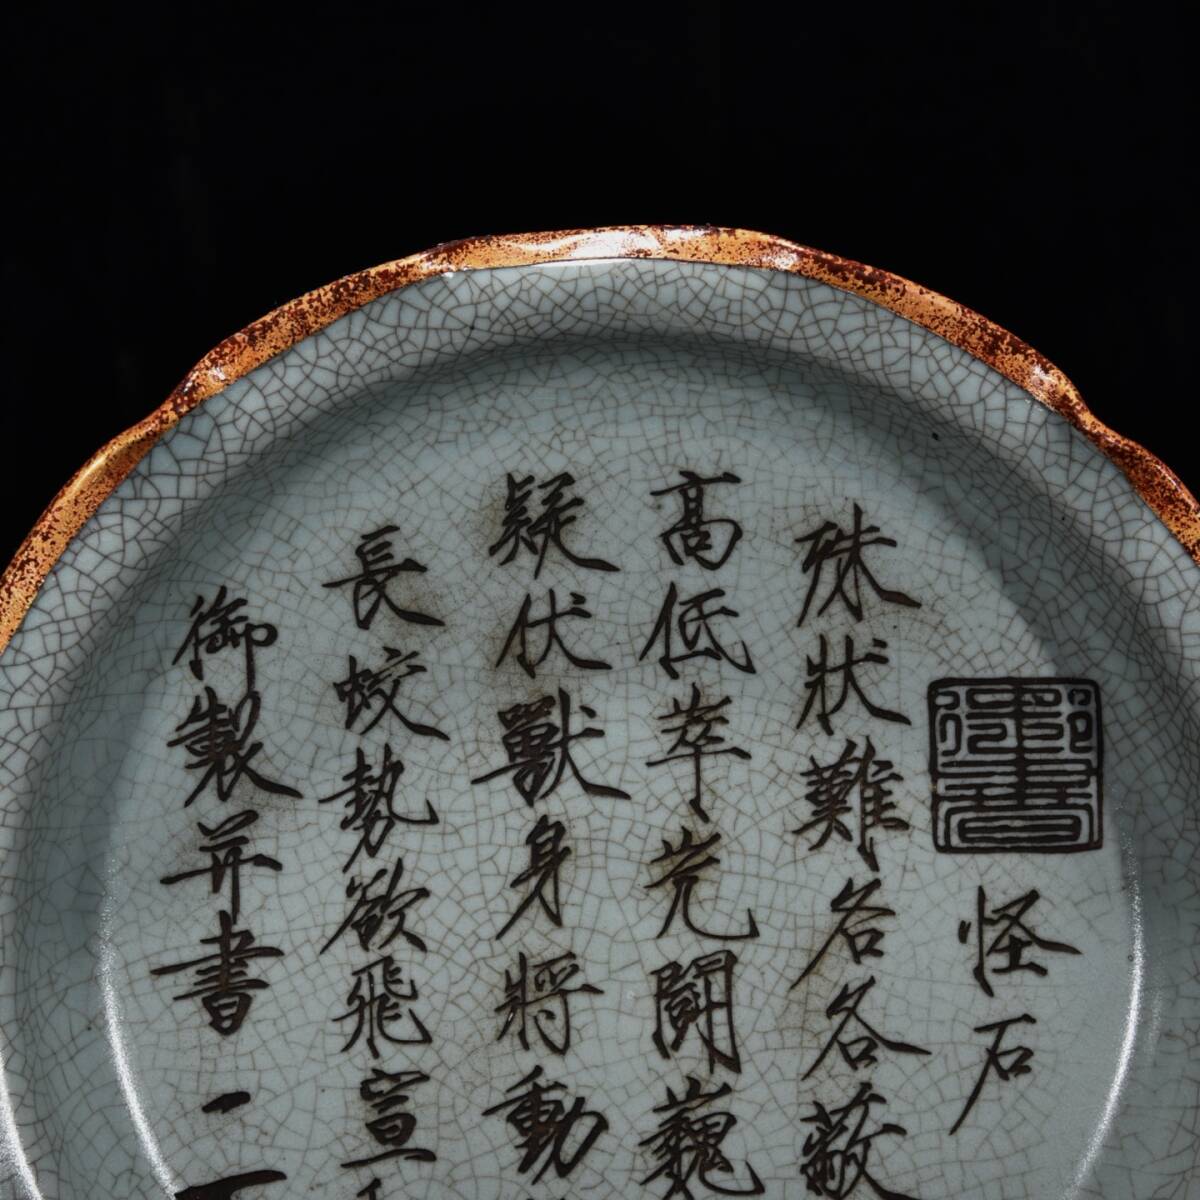 御書
怪石
殊狀難各各蔽
高低萃鬭巍
疑伏獸身將動
長蛟勢欲飛宣
御製并書